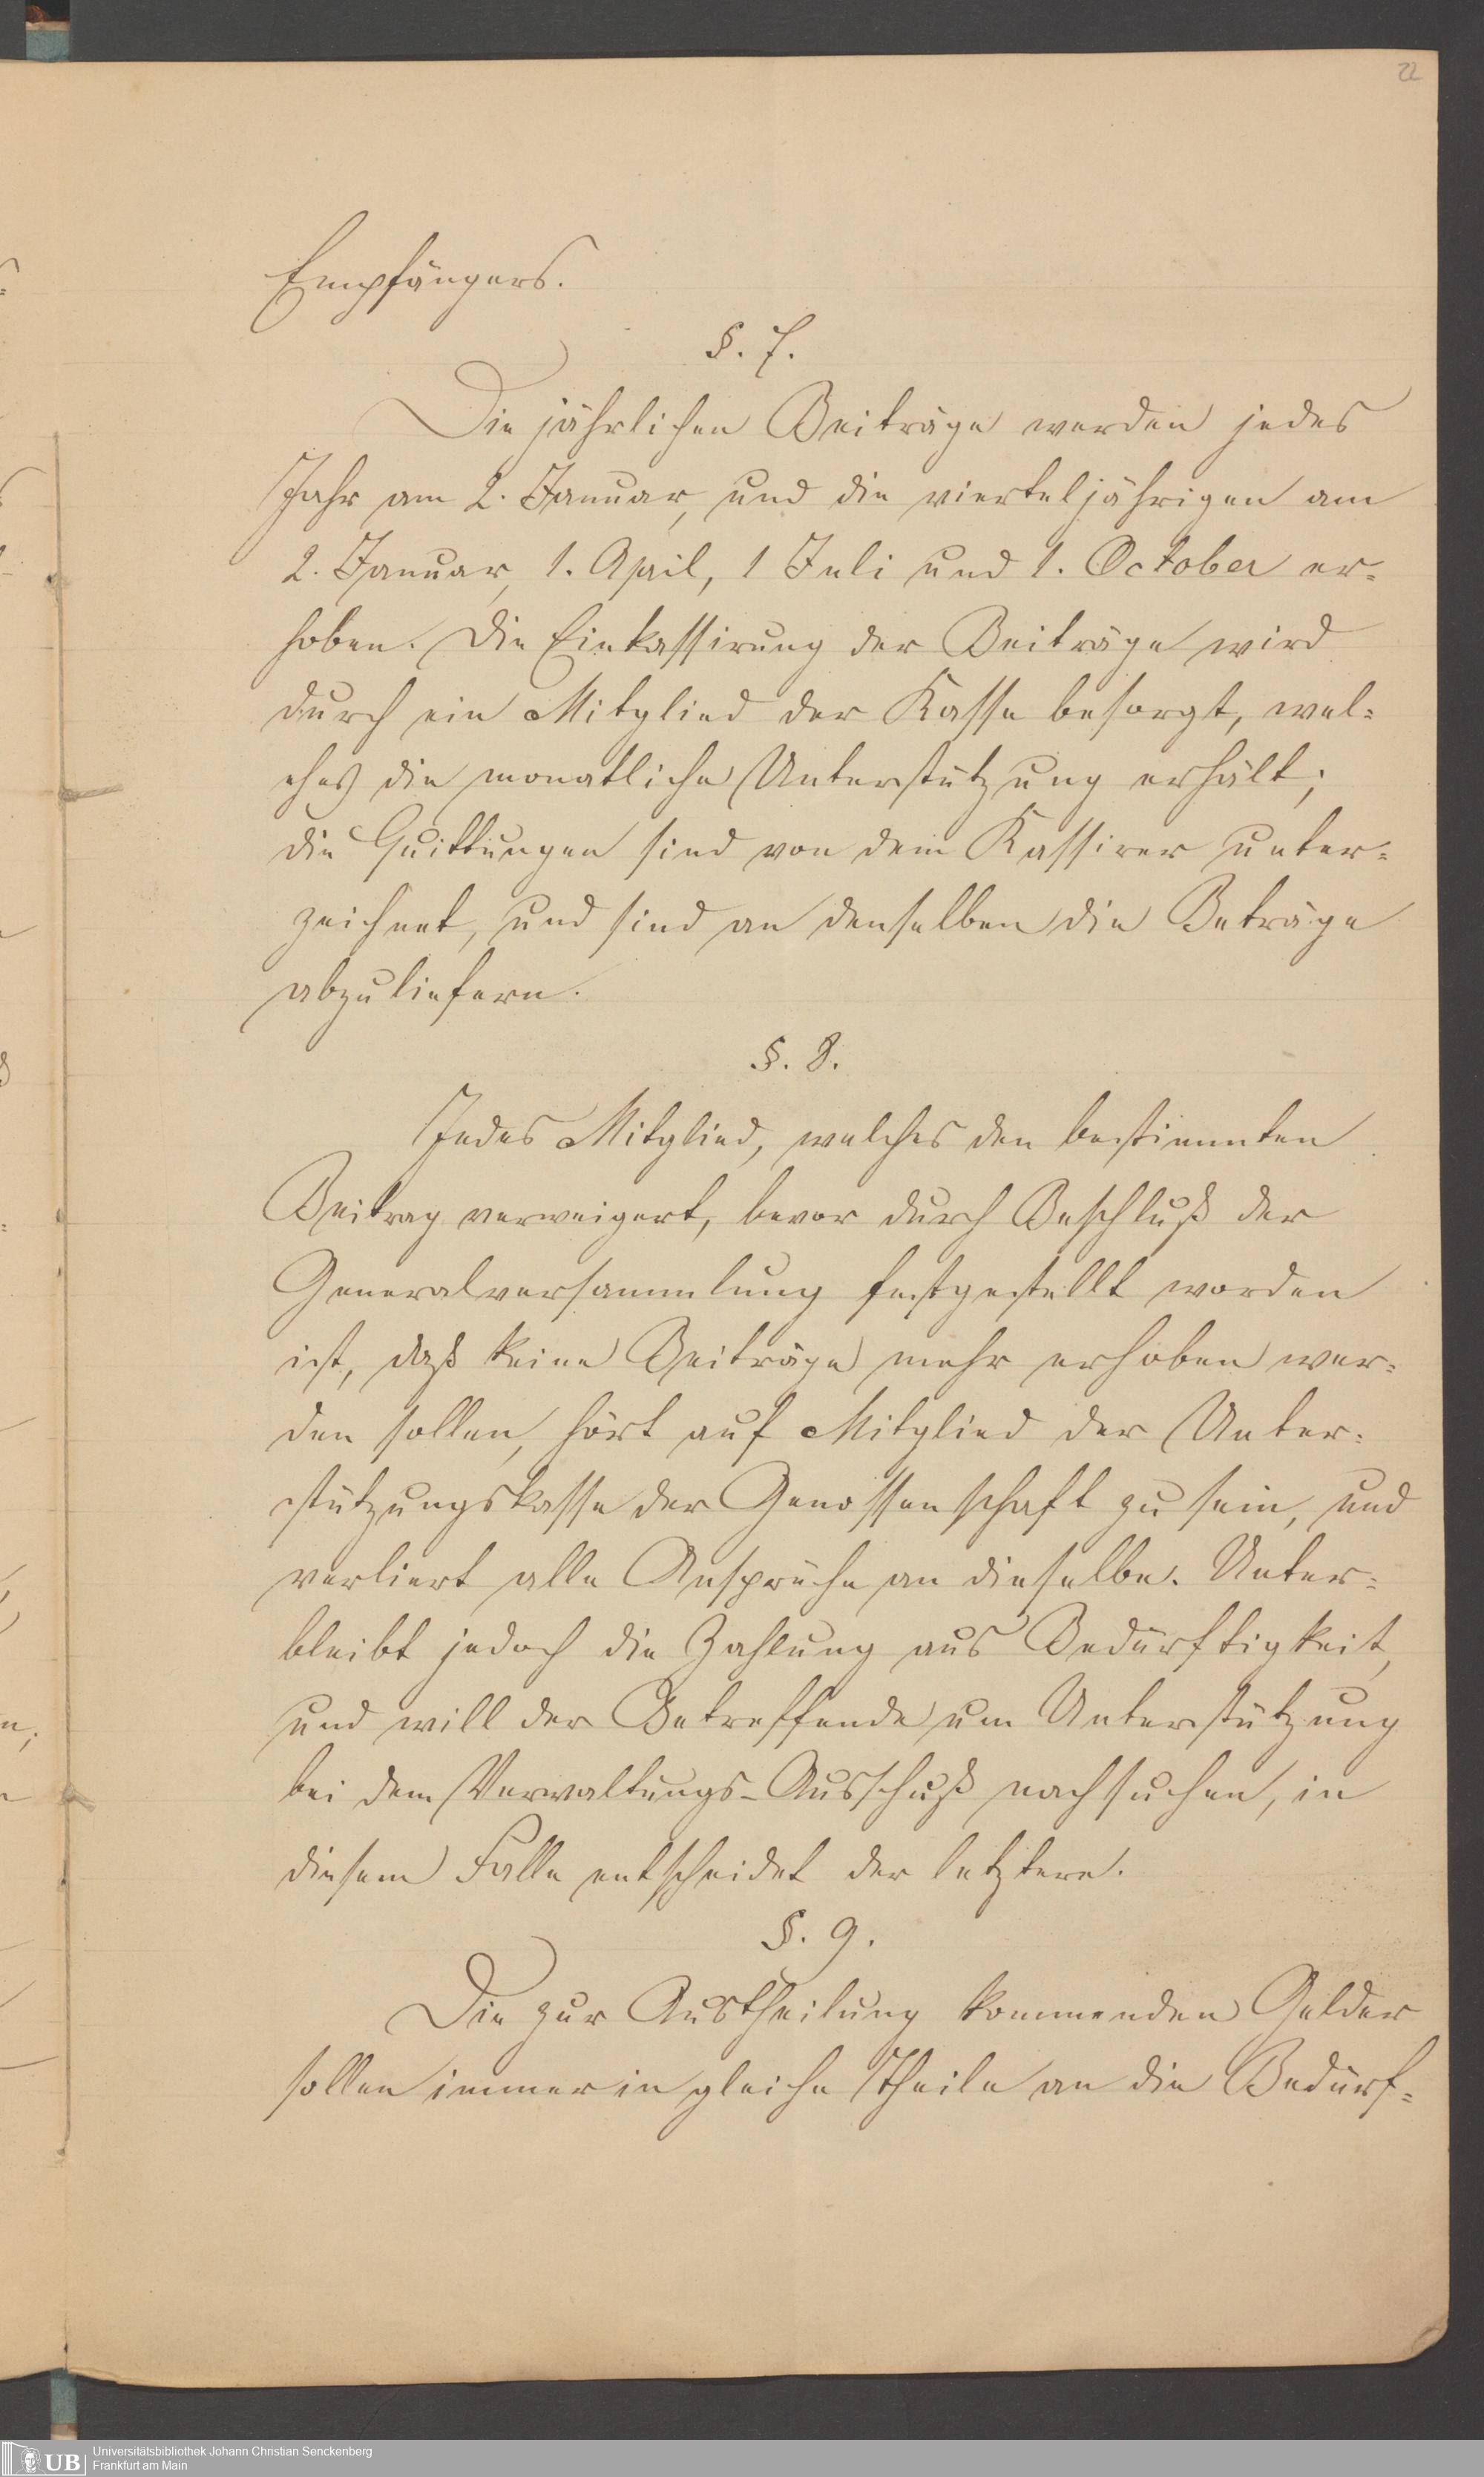 22
Empfängers.
§. 7.
Die jährlichen Beiträge werden jedes
Jahr am 2. Januar, und die vierteljährigen am
2. Januar, 1. April, 1 Juli und 1. October er=
hoben. Die Einkassirung der Beiträge wird
durch ein Mitglied der Kasse besorgt, wel=
ches die monatliche Unterstützung erhält;
die Quittungen sind von dem Kassirer unter=
zeichnet, und sind an denselben die Beträge
abzuliefern.
§. 8.
Jedes Mitglied, welches den bestimmten
Beitrag verweigert, bevor durch Beschluß der
Generalversammlung festgestellt worden
ist, daß keine Beiträge mehr erhoben wer=
den sollen, hört auf Mitglied der Unter=
stützungskasse der Genossenschaft zu sein, und
verliert alle Ansprüche an dieselbe. Unter=
bleibt jedoch die Zahlung aus Bedürftigkeit,
und will der Betreffende um Unterstützung
bei dem Verwaltungs-Ausschuß nachsuchen, in
diesem Falle entscheidet der letztere.
§. 9.
Die zur Austheilung kommenden Gelder
sollen immer in gleiche Theile an die Bedürf=
UB
Universitätsbibliothek Johann Christian Senckenberg
Frankfurt am Main